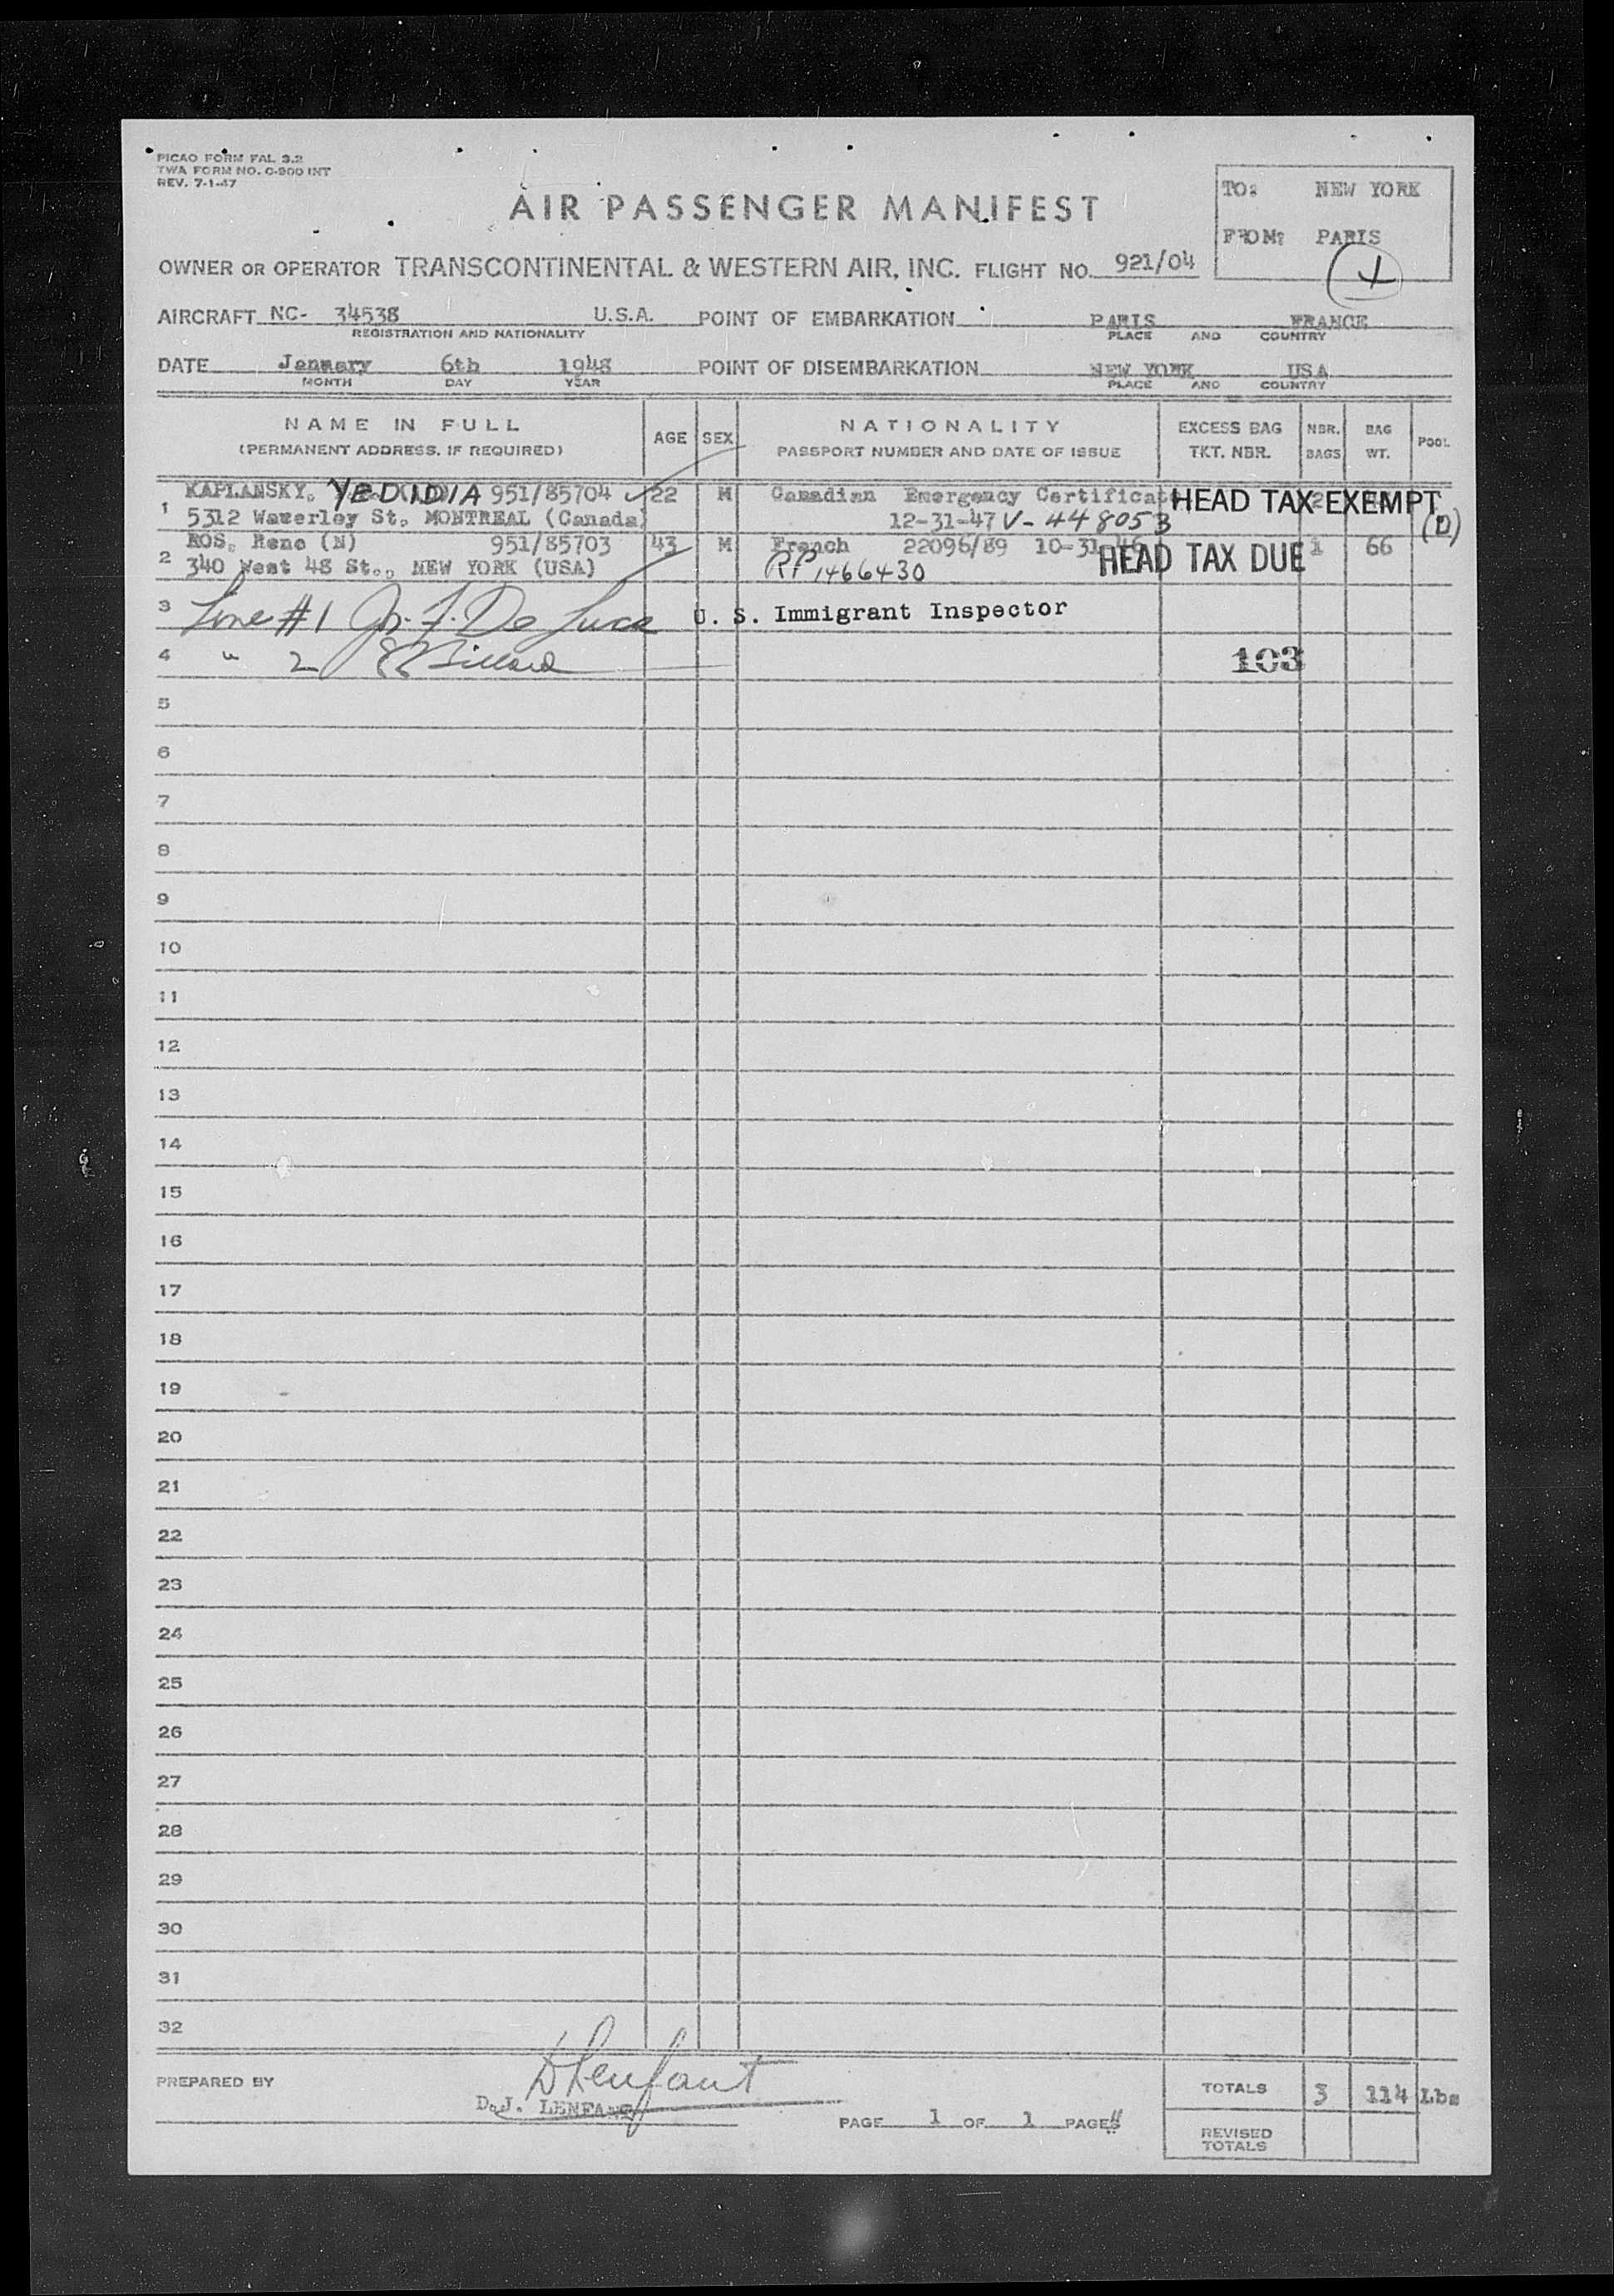 PICAO FORM FAL 3.2
TWA FORM NO. C-900 INT
REV. 7-1-47
AIR PASSENGER MANIFEST
TO: NEW YORK
FROM: PARIS
OWNER OR OPERATOR TRANSCONTINENTAL & WESTERN AIR, INC. FLIGHT NO. 921/04
AIRCRAFT NC- 34538 U.S.A. POINT OF EMBARKATION PARIS FRANCE
REGISTRATION AND NATIONALITY PLACE AND COUNTRY
DATE January 6th 1948 POINT OF DISEMBARKATION NEW YORK USA
MONTH DAY YEAR PLACE AND COUNTRY
NAME IN FULL AGE SEX NATIONALITY EXCESS BAG NBR. BAG POOL
(PERMANENT ADDRESS, IF REQUIRED) PASSPORT NUMBER AND DATE OF ISSUE TKT. NBR. BAGS WT.
1 KAPLANSKY, YEDIDIA 951/85704 22 M Canadian Emergency Certificate HEAD TAX EXEMPT 2
5312 Waverley St. MONTREAL (Canada) 12-31-47 V-448053 (D)
2 ROS, Rene (N) 951/85703 43 M French 22096/89 10-31-46 HEAD TAX DUE 1 66
340 West 48 St., NEW YORK (USA) RP 1466430
3 Line #1 Jn. F. De Luca U. S. Immigrant Inspector
4 " 2 103
5
6
7
8
9
10
11
12
13
14
15
16
17
18
19
20
21
22
23
24
25
26
27
28
29
30
31
32
DLenfant
PREPARED BY D.J. LENFANT
TOTALS 3 114 Lbs
PAGE 1 OF 1 PAGES
REVISED TOTALS